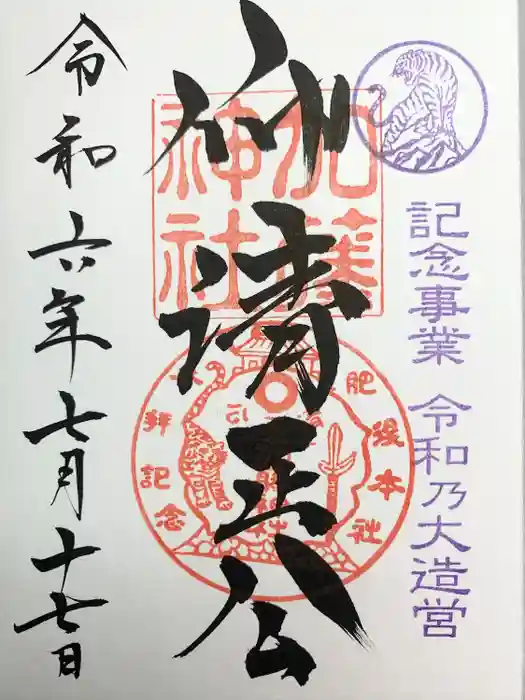 記念事業 令和乃大造営
仰清正公
加藤神社
肥後本社
参拝記念
令和六年七月十七日